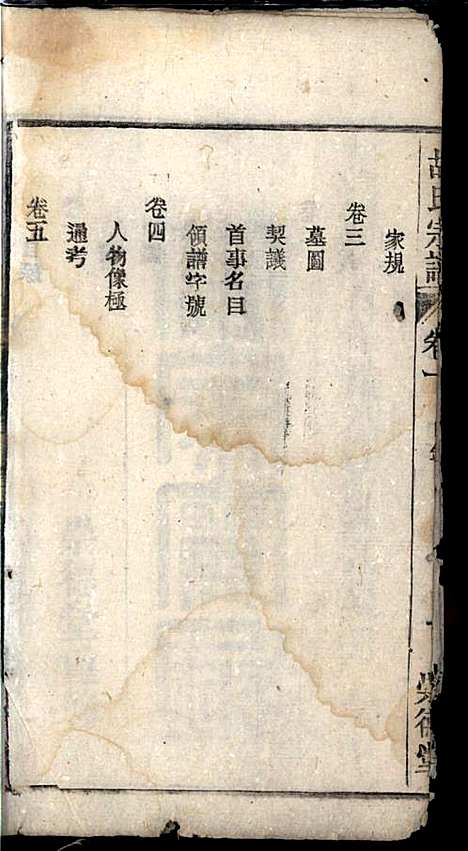 家規
卷三
墓圖
契議
首事名目
領譜字號
卷四
人物像極
通考
卷五
胡氏宗譜
卷一